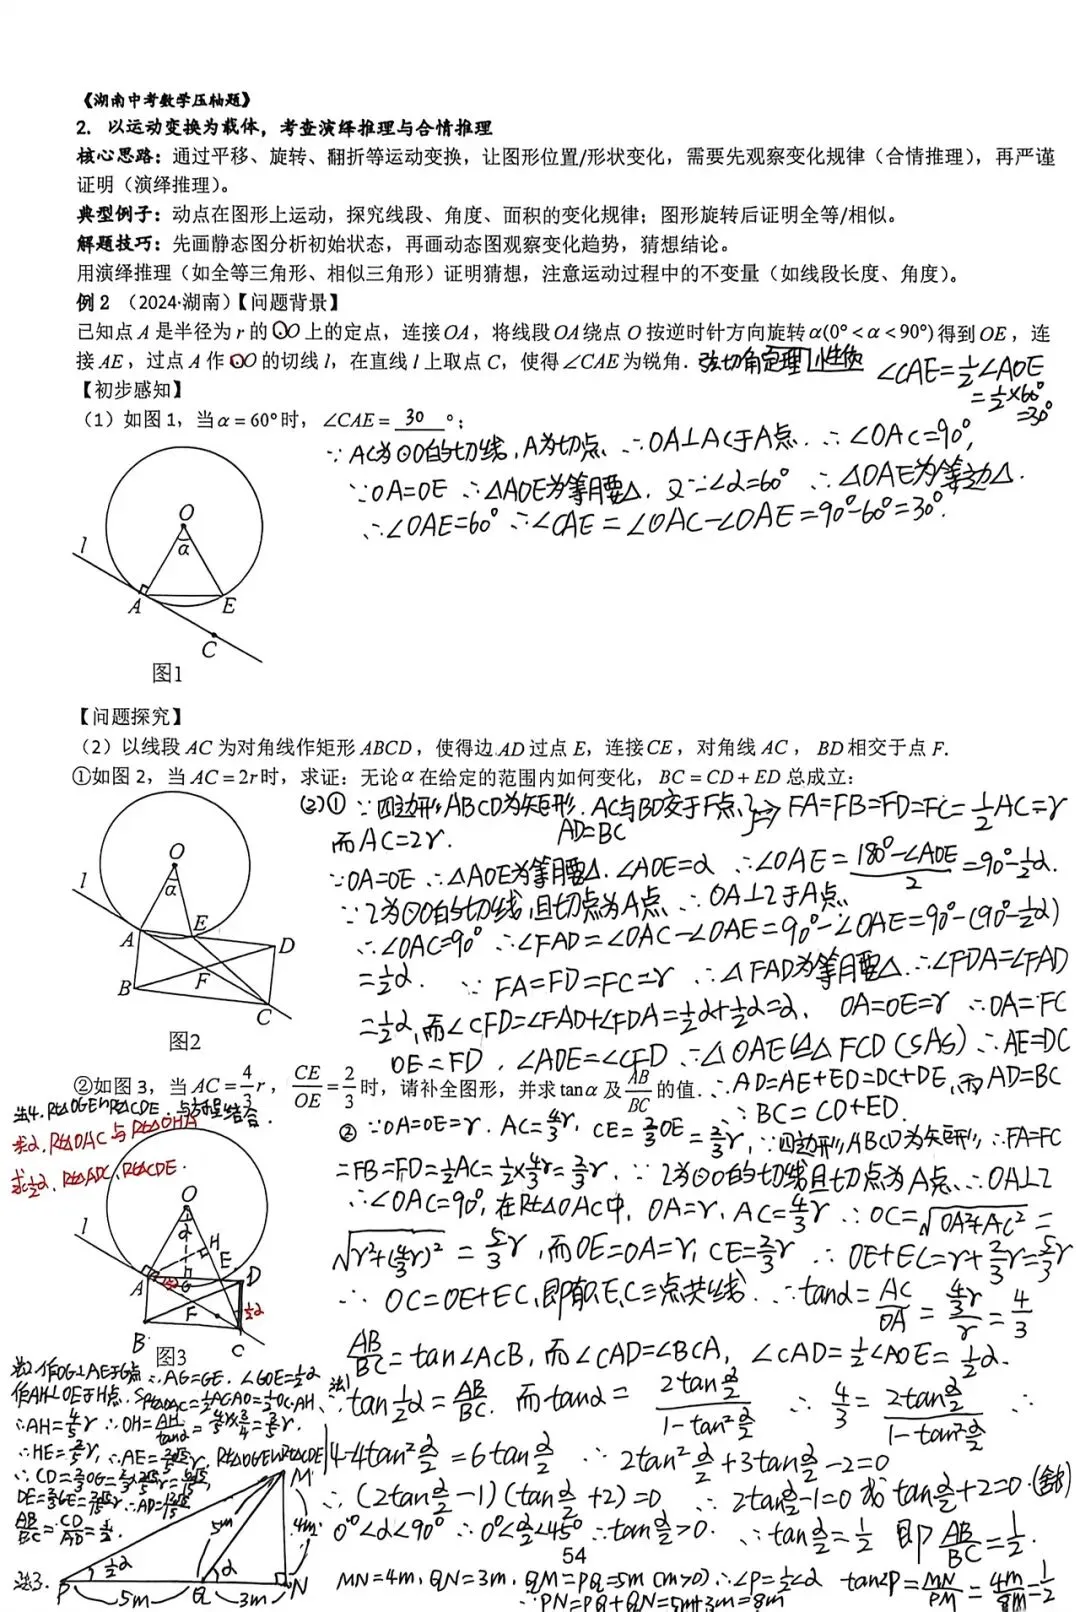 《湖南中考数学压轴题》
2. 以运动变换为载体，考查演绎推理与合情推理
核心思路：通过平移、旋转、翻折等运动变换，让图形位置/形状变化，需要先观察变化规律（合情推理），再严谨
证明（演绎推理）。
典型例子：动点在图形上运动，探究线段、角度、面积的变化规律；图形旋转后证明全等/相似。
解题技巧：先画静态图分析初始状态，再画动态图观察变化趋势，猜想结论。
用演绎推理（如全等三角形、相似三角形）证明猜想，注意运动过程中的不变量（如线段长度、角度）。
例2 （2024·湖南）【问题背景】
已知点A是半径为r的⊙O上的定点，连接OA，将线段OA绕点O按逆时针方向旋转α(0°<α<90°)得到OE，连
接AE，过点A作⊙O的切线l，在直线l上取点C，使得∠CAE为锐角. 弦切角定理 ∠CAE=½∠AOE
=½×60°
=30°
【初步感知】
（1）如图1，当α=60°时，∠CAE= 30 °；
∵AC为⊙O的切线，A为切点、∴OA⊥AC于A点. ∴∠OAC=90°,
∵OA=OE ∴△AOE为等腰△. 又∵∠α=60° ∴△OAE为等边△.
∴∠OAE=60° ∴∠CAE=∠OAC-∠OAE=90°-60°=30°.
O
α
l
A
E
C
图1
【问题探究】
（2）以线段AC为对角线作矩形ABCD，使得边AD过点E，连接CE，对角线AC，BD相交于点F.
①如图2，当AC=2r时，求证：无论α在给定的范围内如何变化，BC=CD+ED总成立：
(2)① ∵四边形ABCD为矩形. AC与BD交于F点、}⇒FA=FB=FD=FC=½AC=r
而AC=2r. AD=BC
∵OA=OE ∴△AOE为等腰△. ∠AOE=α ∴∠OAE=(180°-∠AOE)/2=90°-½α.
∵l为⊙O的切线，且切点为A点、∴OA⊥l于A点.
∴∠OAC=90° ∴∠FAD=∠OAC-∠OAE=90°-∠OAE=90°-(90°-½α)
=½α. ∵FA=FD=FC=r ∴△FAD为等腰△.∴∠FDA=∠FAD
=½α,而∠CFD=∠FAD+∠FDA=½α+½α=α. OA=OE=r ∴OA=FC
OE=FD. ∠AOE=∠CFD ∴△OAE≌△FCD(SAS) ∴AE=DC
∴AD=AE+ED=DC+DE,而AD=BC
∴BC=CD+ED.
O
α
l
A
E
D
B
F
C
图2
②如图3，当AC=4/3r，CE/OE=2/3时，请补全图形，并求tanα及AB/BC的值.
法4. Rt△OGE∽Rt△CDE.与方程结合.
求α. Rt△OAC与Rt△OHA
求½α. Rt△ADC、Rt△CDE.
② ∵OA=OE=r. AC=4/3r, CE=2/3OE=2/3r, ∵四边形ABCD为矩形 ∴FA=FC
=FB=FD=½AC=½×4/3r=2/3r. ∵l为⊙O的切线且切点为A点、∴OA⊥l
∴∠OAC=90°, 在Rt△OAC中, OA=r, AC=4/3r ∴OC=√(OA²+AC²)=
√(r²+(4/3r)²)=5/3r, 而OE=OA=r, CE=2/3r ∴OE+EC=r+2/3r=5/3r
∴OC=OE+EC,即O、E、C三点共线. ∴tanα=AC/OA=(4/3r)/r=4/3
AB/BC=tan∠ACB, 而∠CAD=∠BCA, ∠CAD=½∠AOE=½α.
法1 ∴tan½α=AB/BC. 而tanα=2tan(α/2)/(1-tan²(α/2)) ∴4/3=2tan(α/2)/(1-tan²(α/2)) ∴
4-4tan²(α/2)=6tan(α/2) ∴2tan²(α/2)+3tan(α/2)-2=0
∴(2tan(α/2)-1)(tan(α/2)+2)=0 ∴2tan(α/2)-1=0 或 tan(α/2)+2=0.(舍)
0°<α<90° ∴0°<α/2<45° ∴tan(α/2)>0. ∴tan(α/2)=½ 即AB/BC=½.
O
α
H
l
A
G
E
D
½α
F
B
C
图3
法2.作OG⊥AE于G点 ∴AG=GE. ∠GOE=½α
作AH⊥OE于H点. S Rt△OAC=½AC·AO=½OC·AH
∴AH=4/5r ∴OH=AH/tanα=4/5r×3/4=3/5r.
∴HE=2/5r, ∴AE=2√5/5r, Rt△OGE∽Rt△CDE
AB/BC=CD/AD=½
法3.
M
5m
4m
½α
α
P
5m
Q
3m
N
MN=4m, QN=3m, QM=PQ=5m(m>0) ∴∠P=½∠α tan∠P=MN/PN=4m/8m=½
∴PN=PQ+QN=5m+3m=8m
54